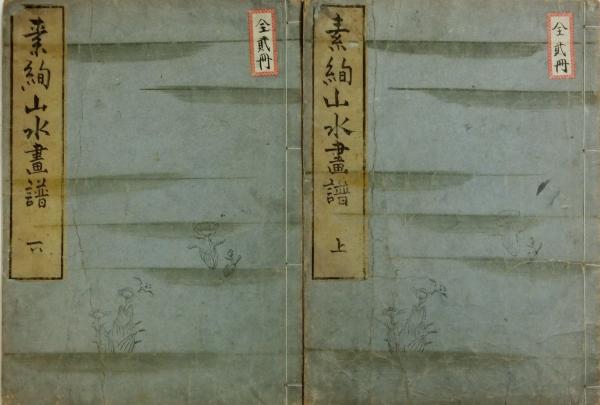 素絢山水畫譜 上
全貳冊
素絢山水畫譜 下
全貳冊